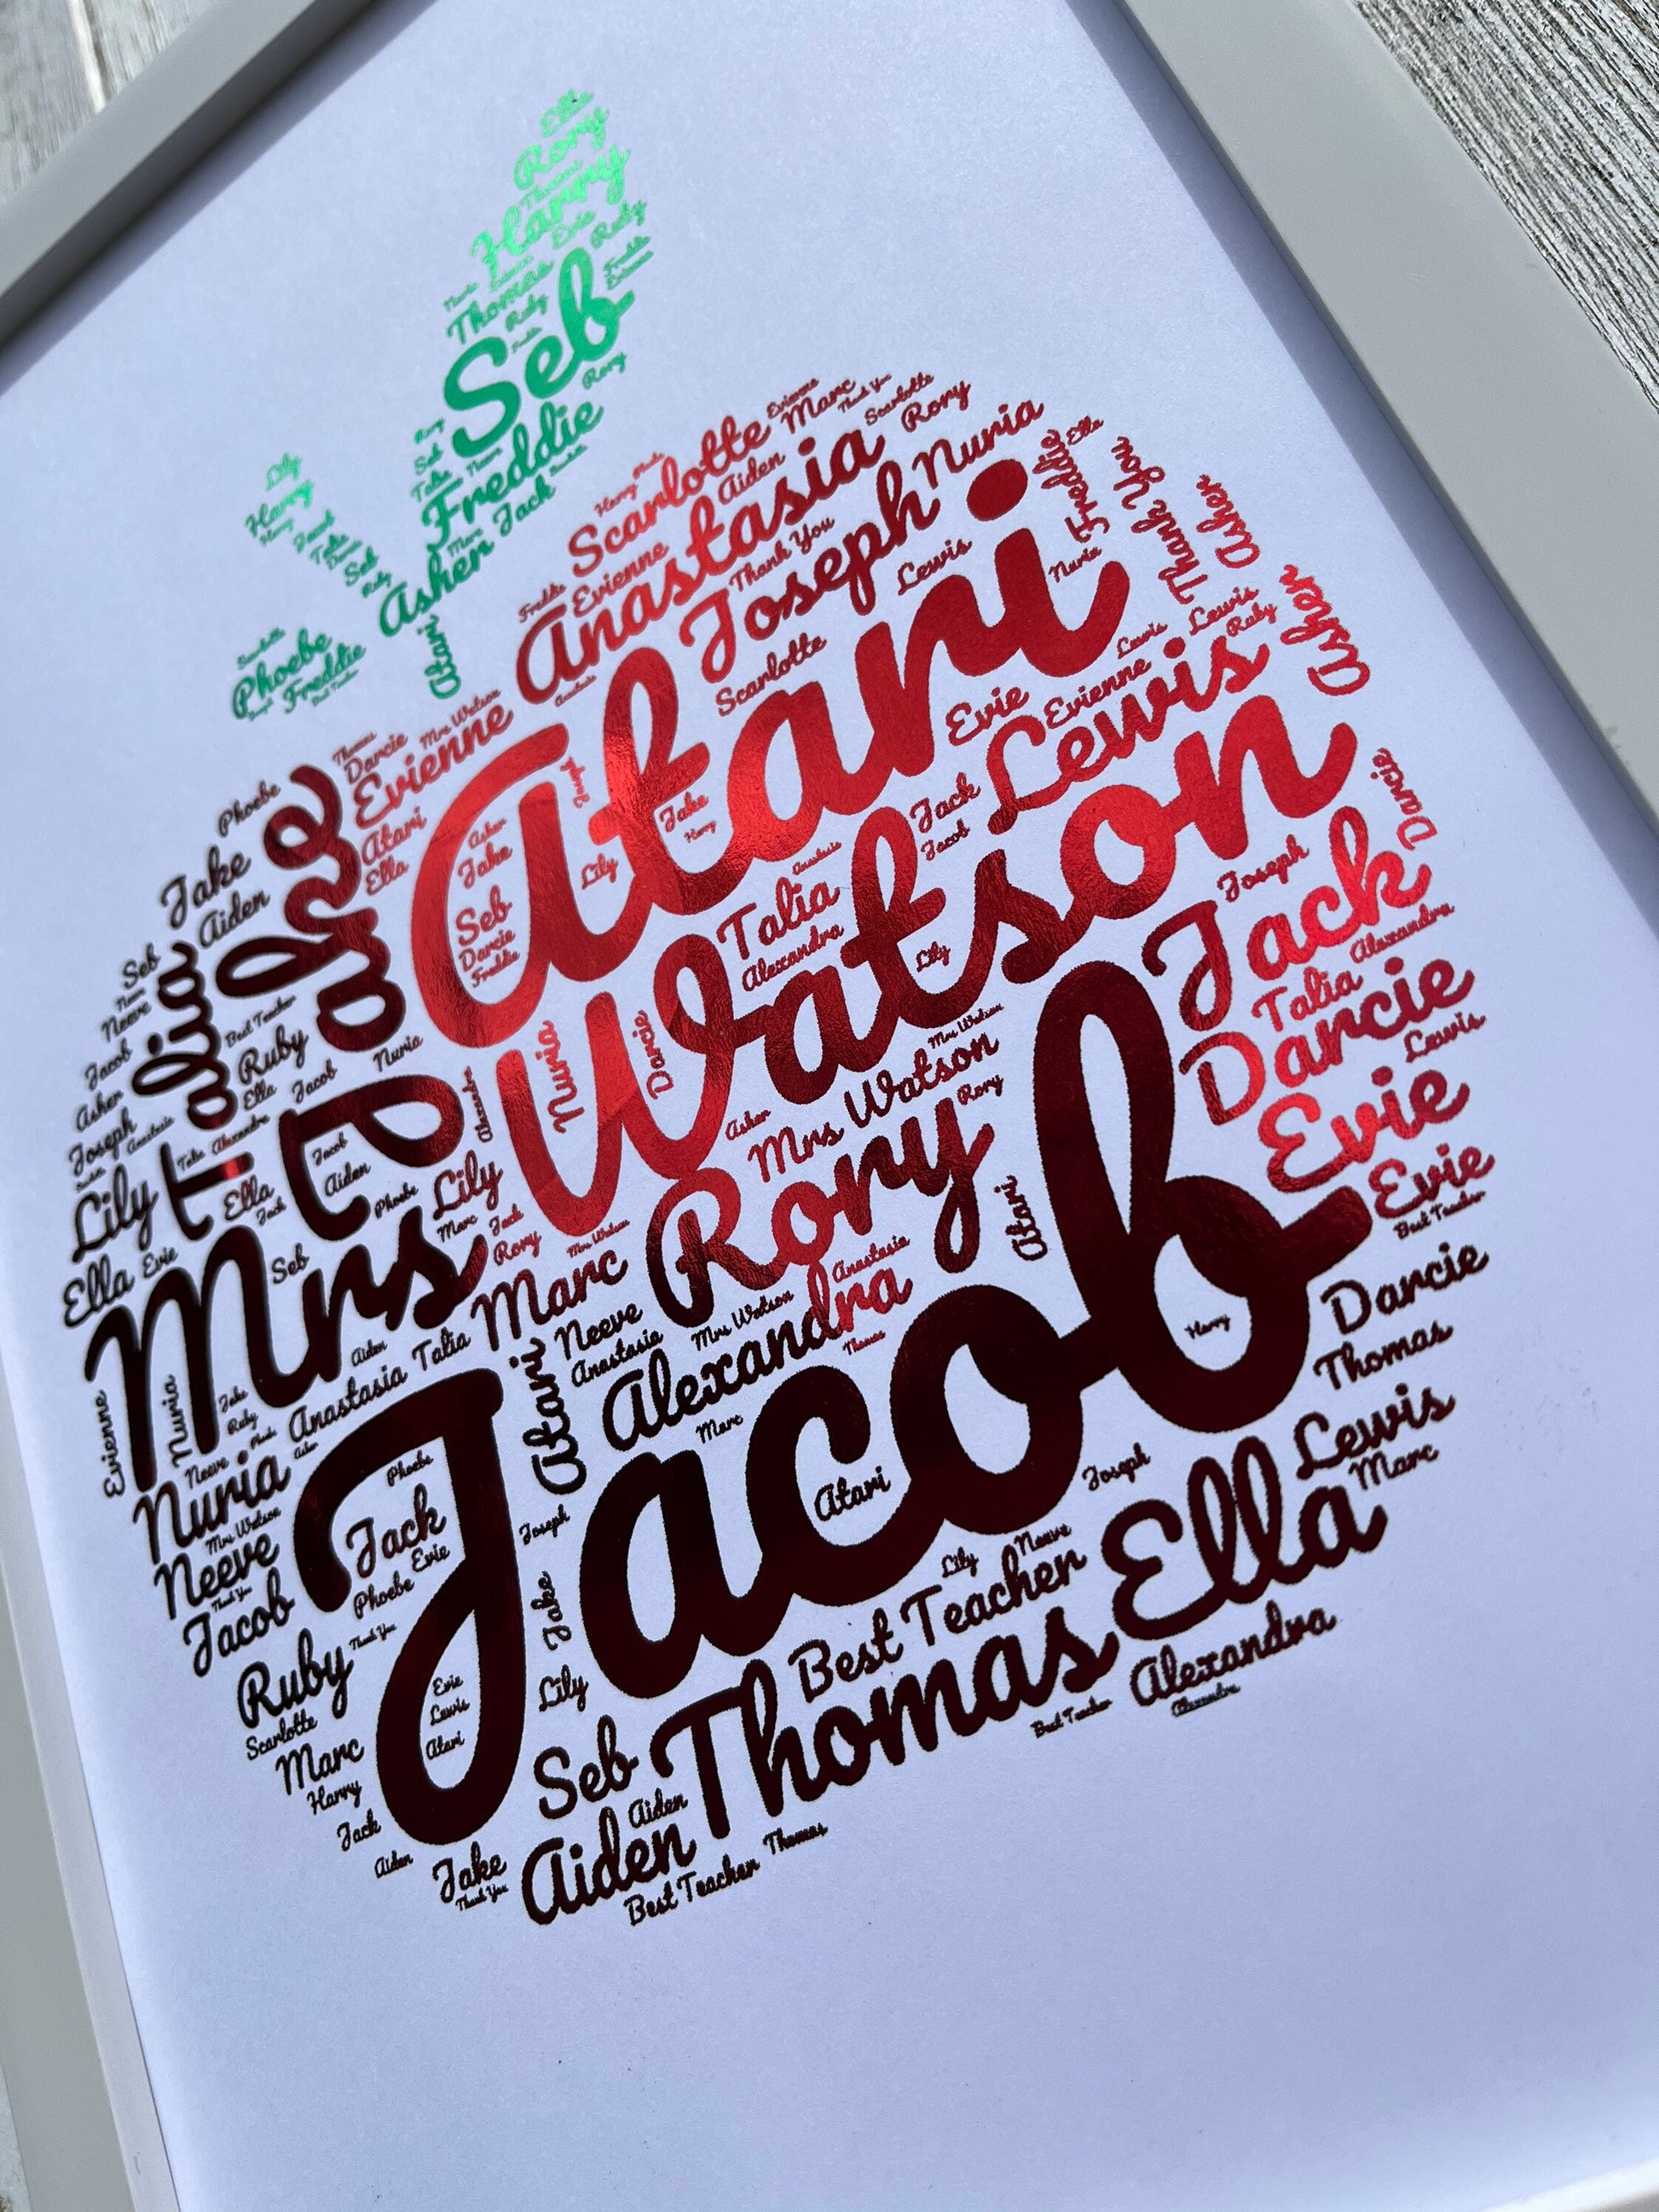 Ella
Rory
Thomas
Harry
Evie
Ruby
Thomas
Ruby
Freddie
Evienne
Seb
Rory
Rory
Seb
Talia
Freddie
Jack
Marc
Asher
Atari
Lily
Harry
Harry
Talia
Seb
Ruby
Scarlotte
Phoebe
Freddie
Best Teacher
Evienne
Marc
Thank You
Scarlotte
Rory
Harry
Scarlotte
Aiden
Anastasia
Evienne
Freddie
Thank You
Joseph
Nuria
Lewis
Freddie
Ella
Thank You
Asher
Asher
Nuria
Atari
Scarlotte
Mrs Watson
Evienne
Thomas
Darcie
Atari
Ella
Joseph
Asher
Jake
Seb
Darcie
Freddie
Lily
Jake
Harry
Evie
Evienne
Lewis
Lewis
Ruby
Lewis
Jack
Jacob
Talia
Alexandra
Watson
Lily
Nuria
Darcie
Asher
Mrs Watson
Mrs Watson
Rory
Rory
Atari
Phoebe
Jake
Aiden
Jake
Seb
Neeve
Jacob
Asher
Joseph
Anastasia
Lily
Talia
Best Teacher
Ruby
Ella
Jacob
Nuria
Alexandra
Talia
Alexandra
Ella
Jack
Jacob
Aiden
Phoebe
Lily
Marc
Jack
Rory
Mrs Watson
Ella
Evie
Seb
Mrs
Darcie
Joseph
Jack
Alexandra
Talia
Darcie
Lewis
Evie
Evie
Best Teacher
Darcie
Thomas
Lewis
Marc
Marc
Neeve
Anastasia
Mrs Watson
Anastasia
Alexandra
Thomas
Marc
Aiden
Talia
Anastasia
Evienne
Nuria
Jake
Ruby
Neeve
Nuria
Mrs Watson
Neeve
Thank You
Jacob
Jacob
Harry
Atari
Atari
Phoebe
Jack
Evie
Phoebe
Thank You
Joseph
Jake
Lily
Evie
Lewis
Atari
Ruby
Scarlotte
Marc
Harry
Jack
Aiden
Jake
Thank You
Seb
Aiden
Aiden
Joseph
Neeve
Lily
Best Teacher
Ella
Thomas
Alexandra
Alexandra
Best Teacher
Thomas
Best Teacher